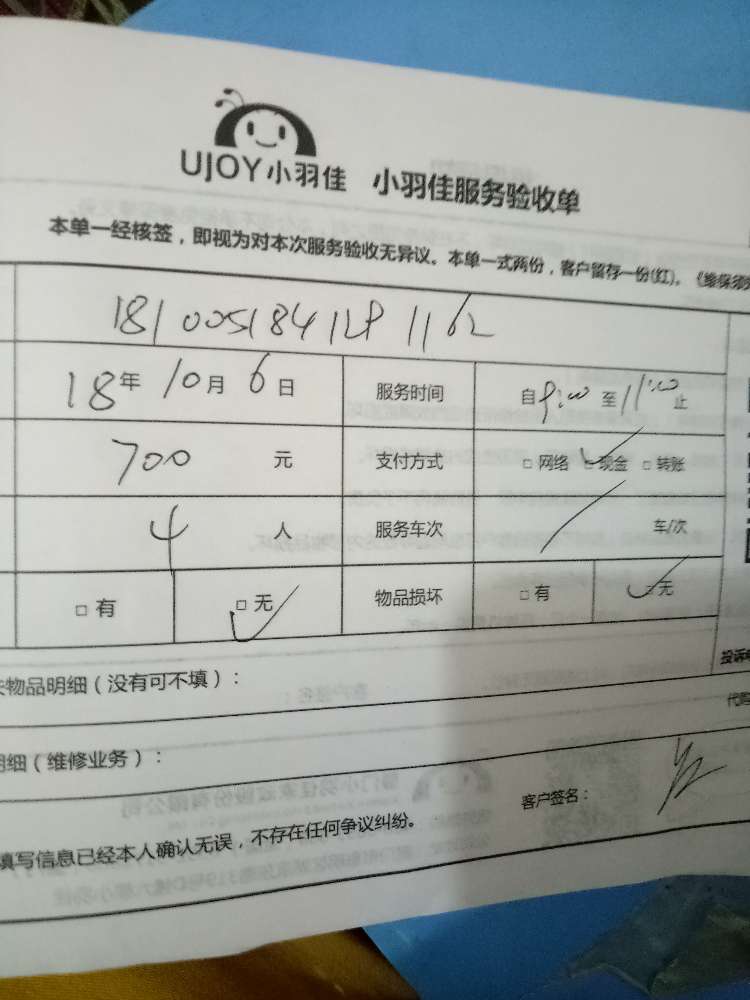 UJOY小羽佳 小羽佳服务验收单
本单一经核签，即视为对本次服务验收无异议。本单一式两份，客户留存一份(红)。《维保须
18年10月6日 服务时间 自9:00至11:00止
700元 支付方式 □网络 ☑现金 □转账
4人 服务车次 / 车/次
□有 ☑无 物品损坏 □有 ☑无
物品明细（没有可不填）：
投诉
代码
细（维修业务）：
客户签名：
填写信息已经本人确认无误，不存在任何争议纠纷。